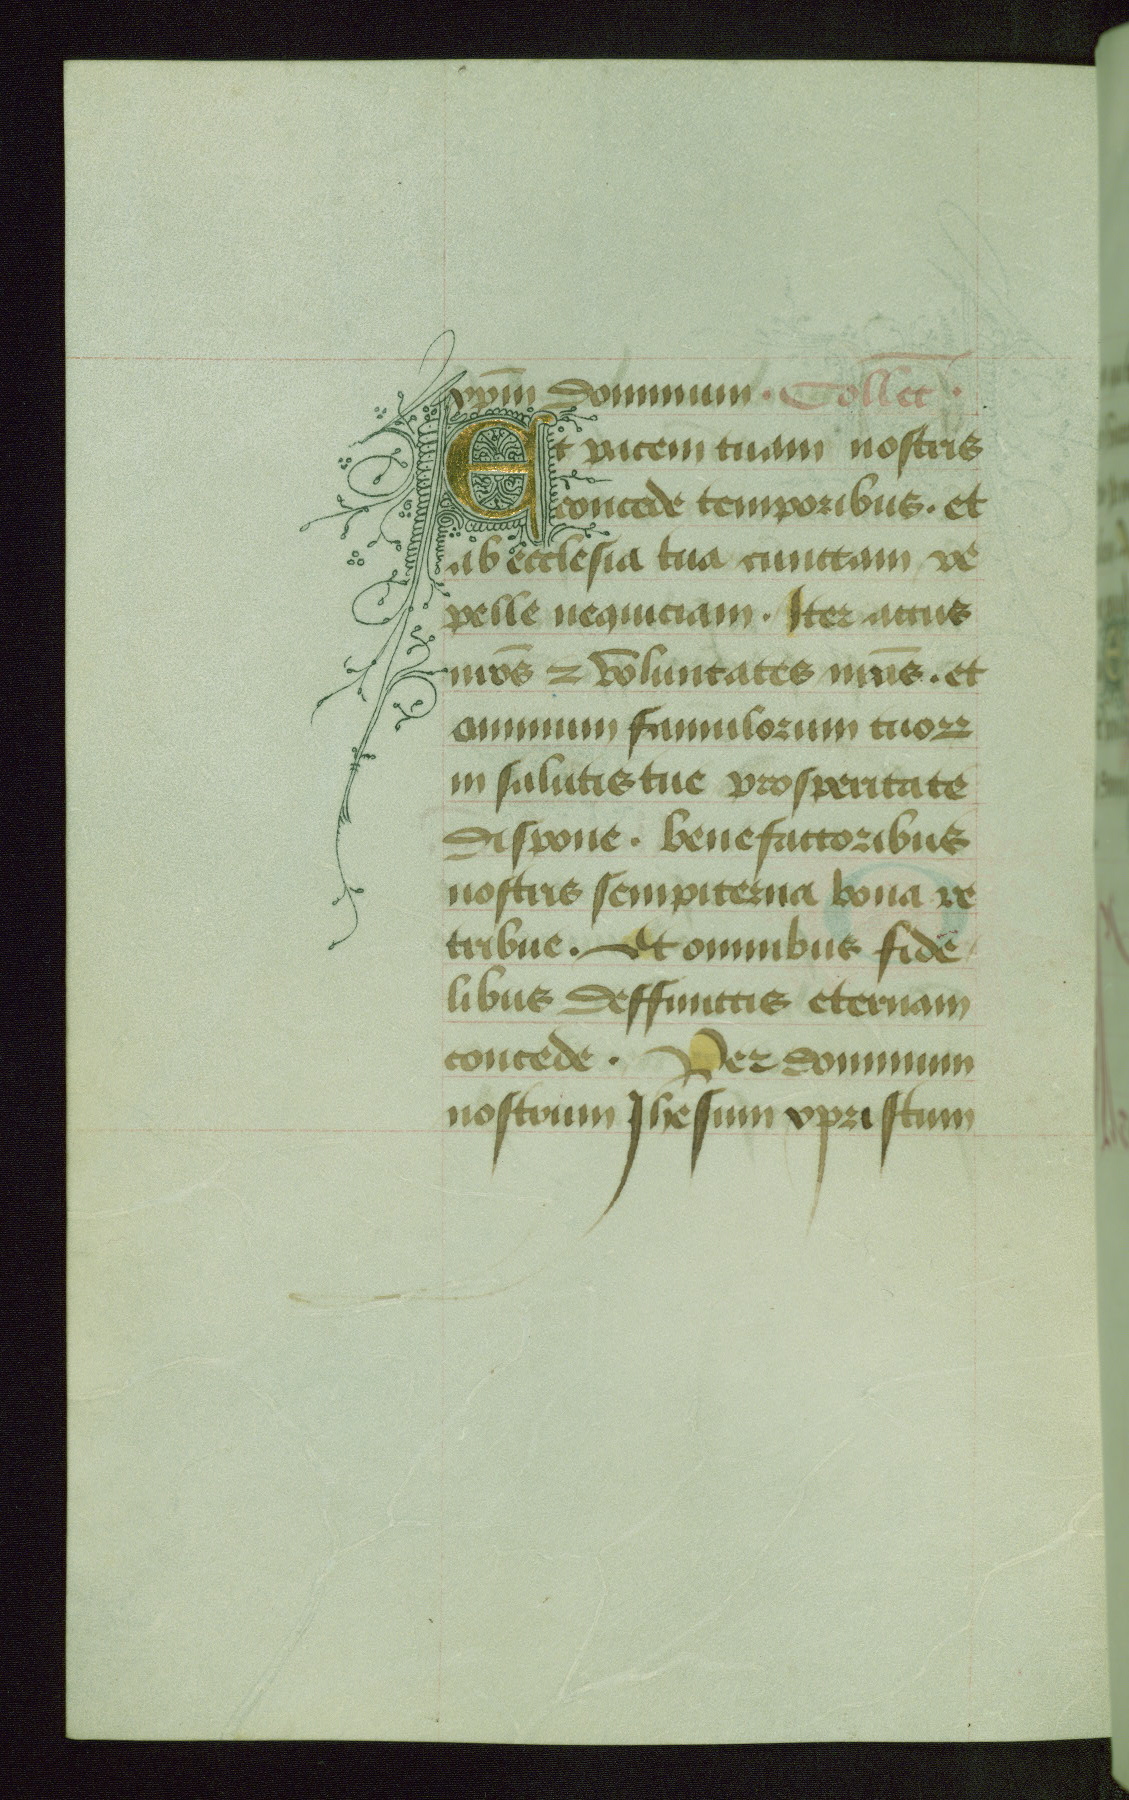 xp̄m dominum. Collet.
Et pacem tuam nostris
concede temporibus. et
ab ecclesia tua cunctam re
pelle nequiciam. Iter actus
nr̄os ⁊ voluntates nr̄as. et
omnium famulorum tuorꝝ
in salutis tue prosperitate
dispone. benefactoribus
nostris sempiterna bona re
tribue. Et omnibus fide
libus deffunctis eternam
concede. Per dominum
nostrum Jhesum xpristum